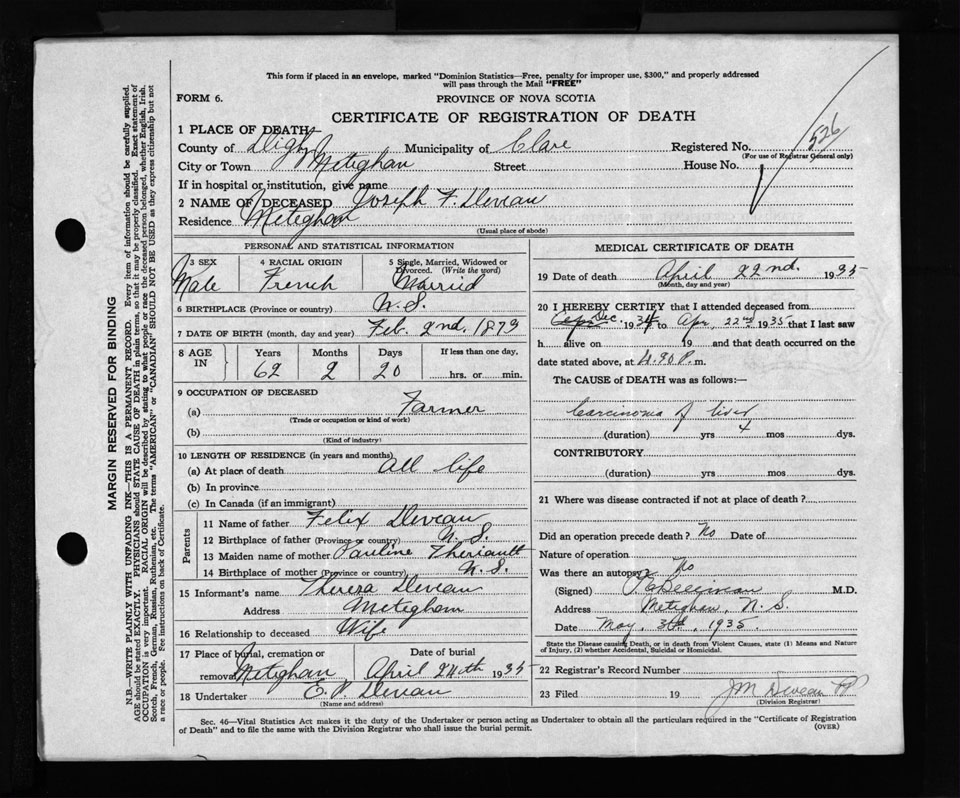 This form if placed in an envelope, marked "Dominion Statistics—Free, penalty for improper use, $300," and properly addressed
will pass through the Mail "FREE"
FORM 6.
PROVINCE OF NOVA SCOTIA
CERTIFICATE OF REGISTRATION OF DEATH
526
1 PLACE OF DEATH
County of Digby Municipality of Clare Registered No.
(For use of Registrar General only)
City or Town Meteghan Street House No.
If in hospital or institution, give name
2 NAME OF DECEASED Joseph F. Deveau
Residence Meteghan
(Usual place of abode)
PERSONAL AND STATISTICAL INFORMATION
3 SEX 4 RACIAL ORIGIN 5 Single, Married, Widowed or
Divorced. (Write the word)
Male French Married
6 BIRTHPLACE (Province or country) N.S.
7 DATE OF BIRTH (month, day and year) Feb. 2nd. 1873
8 AGE IN Years Months Days If less than one day,
62 2 20 hrs. or min.
9 OCCUPATION OF DECEASED
(a) Farmer
(Trade or occupation or kind of work)
(b)
(Kind of industry)
10 LENGTH OF RESIDENCE (in years and months)
(a) At place of death All life
(b) In province
(c) In Canada (if an immigrant)
Parents
11 Name of father Felix Deveau
12 Birthplace of father (Province or country) N.S.
13 Maiden name of mother Pauline Theriault
14 Birthplace of mother (Province or country) N.S.
15 Informant's name Theresa Deveau
Address Meteghan
16 Relationship to deceased Wife
17 Place of burial, cremation or Date of burial
removal Meteghan April 24th 1935
18 Undertaker E. P. Deveau
(Name and address)
MEDICAL CERTIFICATE OF DEATH
19 Date of death April 22nd. 1935
(Month, day and year)
20 I HEREBY CERTIFY that I attended deceased from
Dec. 1934 to Apr. 22nd 1935 that I last saw
h alive on 19 and that death occurred on the
date stated above, at 4.30 P. m.
The CAUSE of DEATH was as follows:—
Carcinoma of liver
(duration) yrs 4 mos dys.
CONTRIBUTORY
(duration) yrs mos dys.
21 Where was disease contracted if not at place of death?
Did an operation precede death? No Date of
Nature of operation
Was there an autopsy? No
(Signed) M.D.
Address Meteghan, N.S.
Date May, 3th, 1935
State the Disease causing Death, or in death from Violent Causes, state (1) Means and Nature
of Injury, (2) whether Accidental, Suicidal or Homicidal.
22 Registrar's Record Number
23 Filed 19 J M Deveau
(Division Registrar)
Sec. 46—Vital Statistics Act makes it the duty of the Undertaker or person acting as Undertaker to obtain all the particulars required in the "Certificate of Registration
of Death" and to file the same with the Division Registrar who shall issue the burial permit.
(OVER)
MARGIN RESERVED FOR BINDING
N.B.—WRITE PLAINLY WITH UNFADING INK—THIS IS A PERMANENT RECORD. Every item of information should be carefully supplied.
AGE should be stated EXACTLY. PHYSICIANS should STATE CAUSE OF DEATH in plain terms, so that it may be properly classified. Exact statement of
OCCUPATION is very important. RACIAL ORIGIN will be described by stating to what people or race the deceased person belonged, whether English, Irish,
Scotch, French, German, Russian, Ruthenian, etc. The terms "AMERICAN" or "CANADIAN" SHOULD NOT BE USED as they express citizenship but not
a race or people. Fee instructions on back of Certificate.